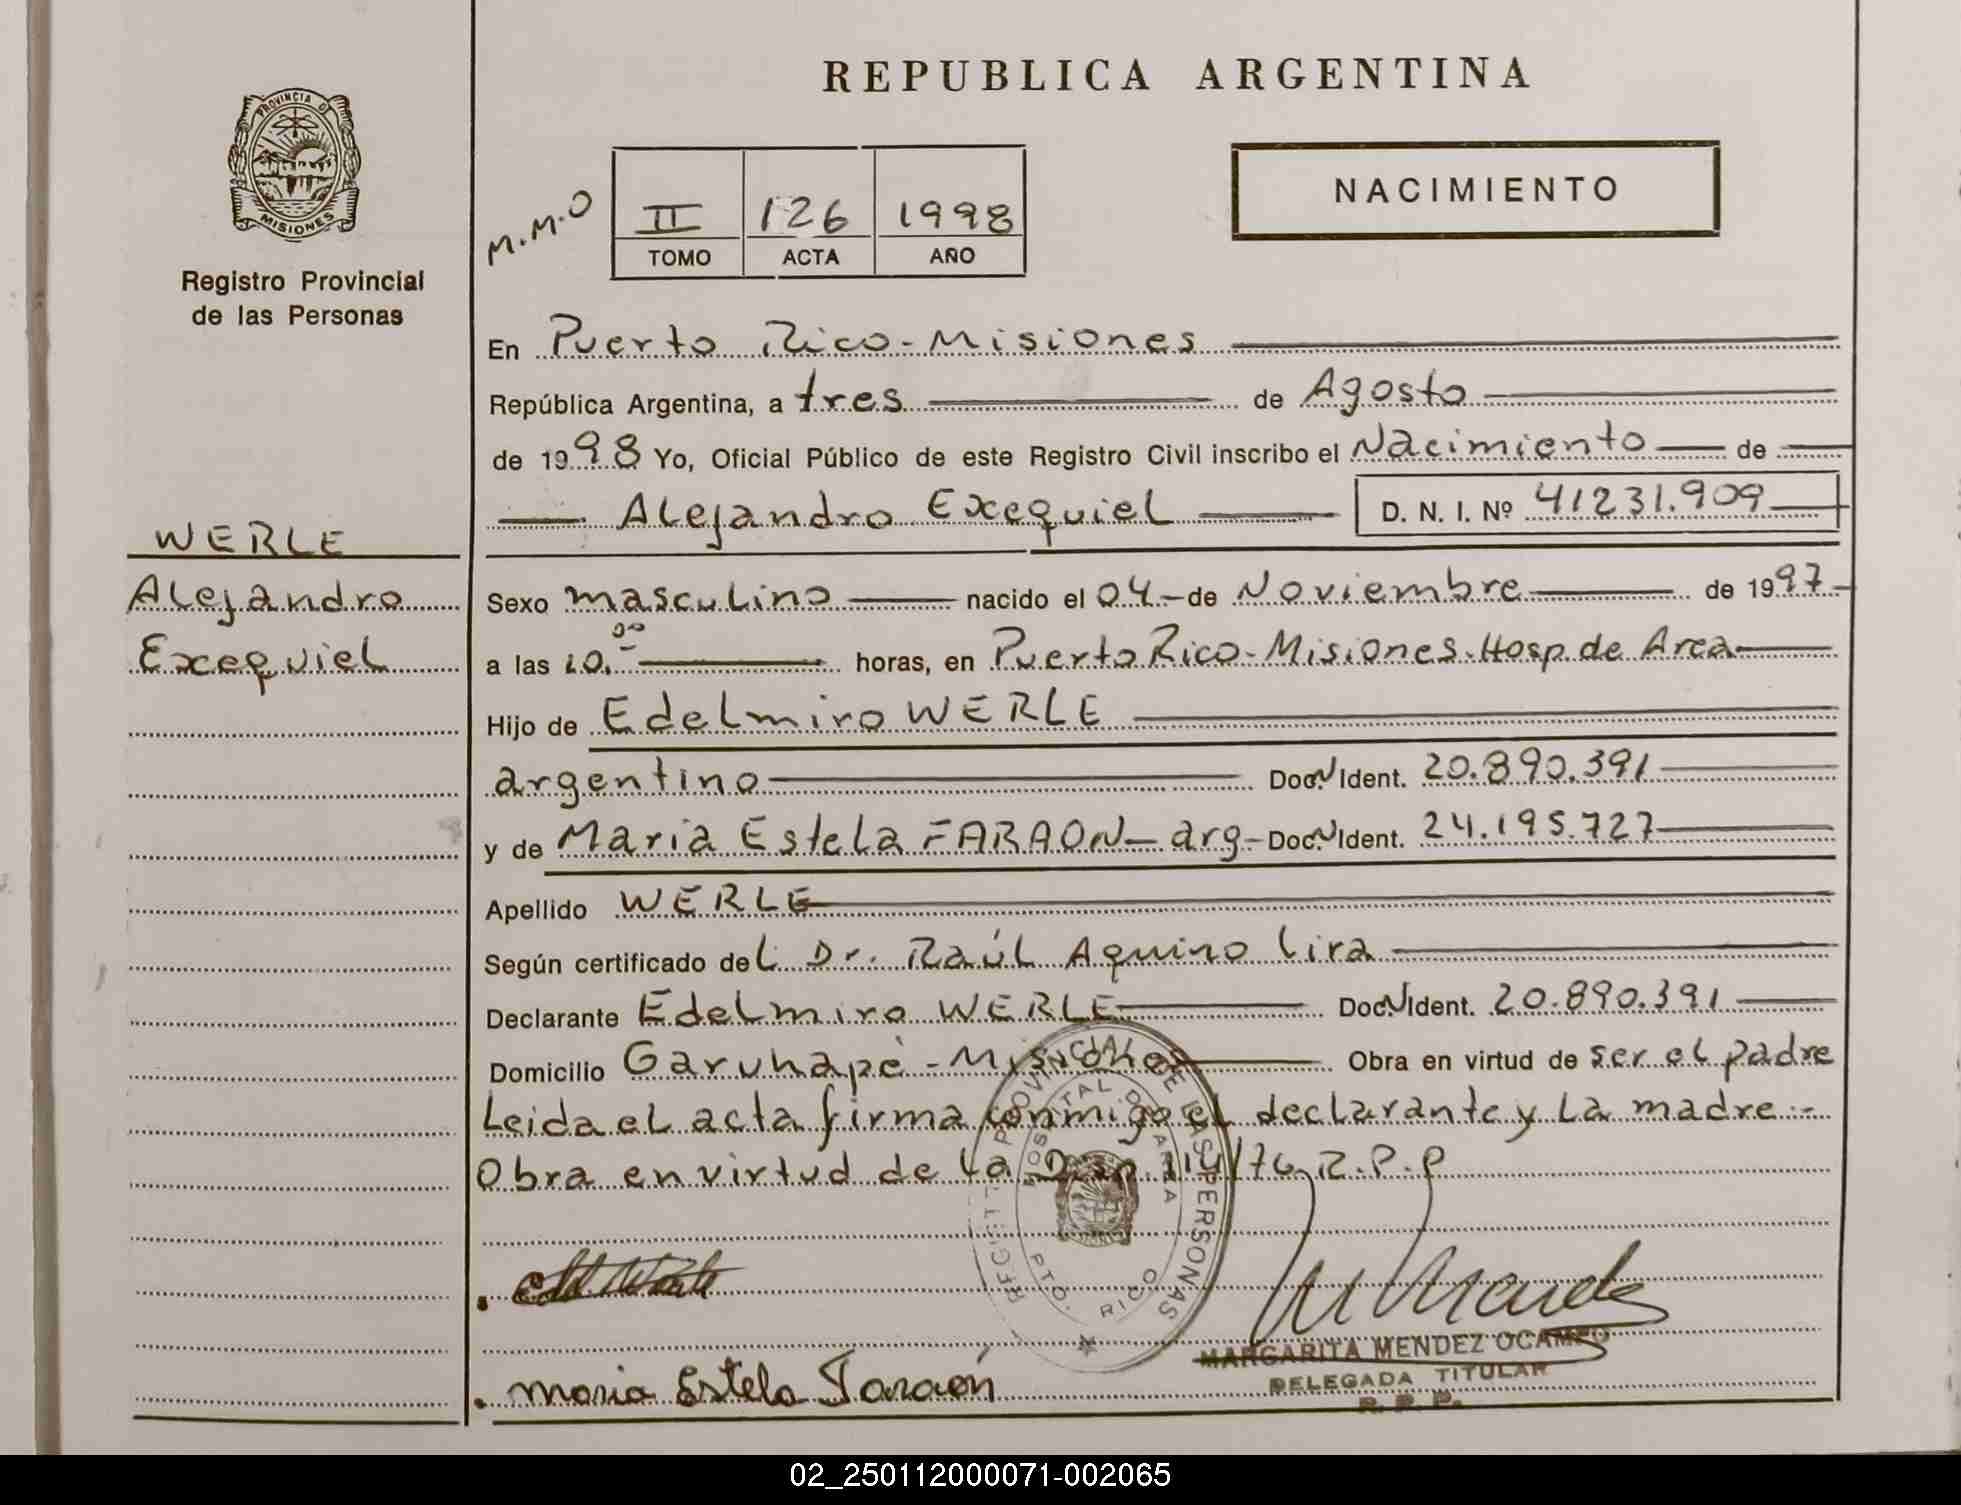 REPUBLICA ARGENTINA
PROVINCIA D
MISIONES
Registro Provincial
de las Personas
M.M.O
II 126 1998
TOMO ACTA AÑO
NACIMIENTO
En Puerto Rico - Misiones
República Argentina, a tres de Agosto
de 1998 Yo, Oficial Público de este Registro Civil inscribo el Nacimiento de
Alejandro Exequiel D. N. I. Nº 41231.909
WERLE
Alejandro
Exequiel
Sexo masculino nacido el 04 - de Noviembre de 1997 -
a las 10.00 horas, en Puerto Rico - Misiones. Hosp. de Area
Hijo de Edelmiro WERLE
argentino Doc. N Ident. 20.890.391
y de Maria Estela FARAON - arg - Doc. N Ident. 24.195.727
Apellido WERLE
Según certificado del Dr. Raúl Aquino Lira
Declarante Edelmiro WERLE Doc. N Ident. 20.890.391
Domicilio Garuhapé - Misiones Obra en virtud de ser el padre
Leida el acta firma conmigo el declarante y la madre.-
Obra en virtud de la Disp. 114/76 R.P.P
REGISTRO PROVINCIAL DE LAS PERSONAS
HOSPITAL DE AREA
PTO. RICO
MARGARITA MENDEZ OCAMPO
DELEGADA TITULAR
R. P. P.
Maria Estela Faraón
02_250112000071-002065